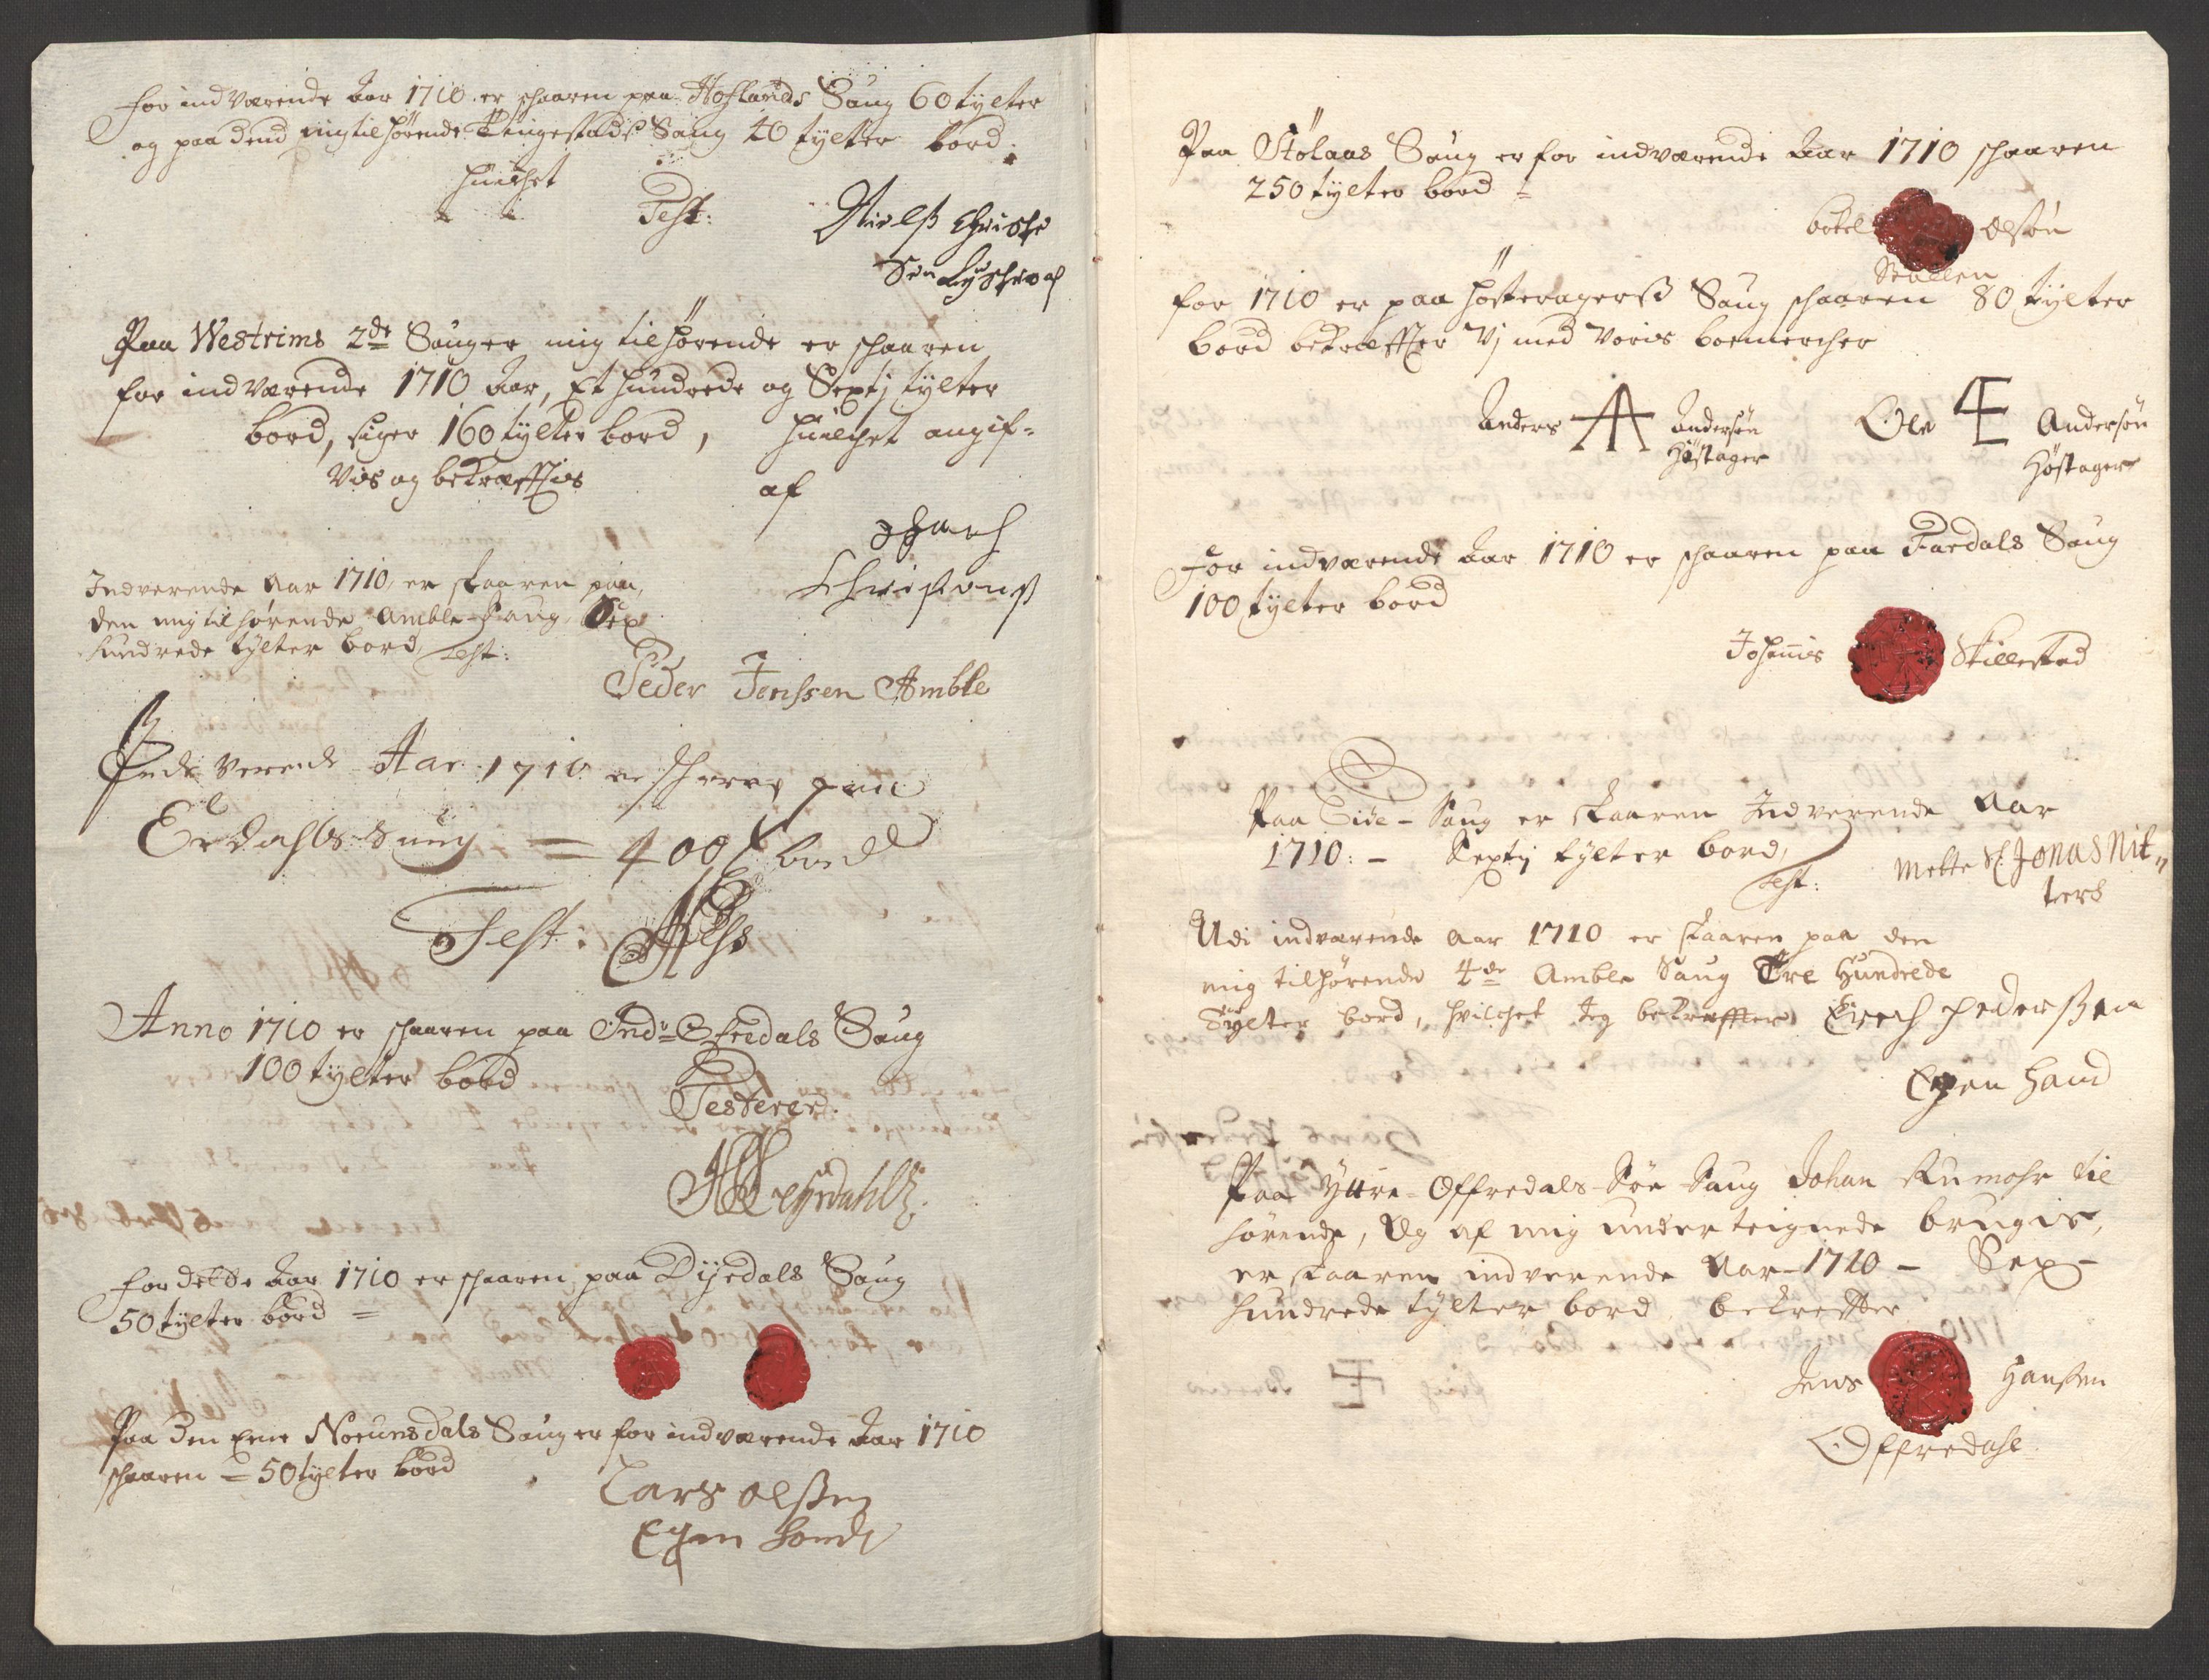 for indværende Aar 1710. er schaaren paa Hoflands Saug 60 tylter
og paa dend mig tilhørende Tingestads Saug 40 tylter bord.
huilchet
Test:
Nielß Christen
Sen
Paa Westrims 2de Sauger mig tilhørende er schaaren
for indværende 1710 Aar, Et hundrede og Sextj tylter
bord, siger 160 tylter bord, huilchet angif-
ves og bekræfftis af
Christens
Indverende Aar 1710, er skaaren paa,
den mig tilhørende Amble Saug, Sex
hundrede tylter bord, Test:
Peder Jenssen Amble
Inde verende Aar 1710 er schaaren paa
Erdahls Saug = 400 t bord
Test:
Anno 1710 er schaaren paa Ind: Ofredals Saug
100 tylter bord
Testerer.
for dette Aar 1710 er schaaren paa Dyedals Saug
50 tylter bord =
Paa den Ene Noeunsdals Saug er for indværende Aar 1710
schaaren = 50 tylter bord
Lars olßen
Egen handt
Paa Stölaas Saug er for indværende Aar 1710 schaaren
250 tylter bord
botel olsön
for 1710 er paa Hösteragerß Saug schaaren 80 tylter
bord bekræffter Vj med Voris boemercher
Anders A Andersön Ole Æ Andersön
Höstager Höstager
For indværende Aar 1710 er schaaren paa Fardals Saug
100 tylter bord
Johannis Skillestad
Paa Eide-Saug er skaaren Indverende Aar
1710:- Sextij tylter bord,
Test: Mette Sl: Jonas Nit„
ters
Udi indværende Aar 1710 er skaaren paa den
mig tilhørende 4de Amble Saug Tre Hundrede
Tylter bord, hvilchet Jeg bekræffter Erech Pederßen
Egen Hand
Paa Yttre-Offredals-Söe-Saug Johan Rumohr til
hörende, Og af mig underteignede brugis,
er skaaren indverende Aar 1710 - Sex-
hundrede tylter bord, bekreffter
Jens Hanßen
Offredahl